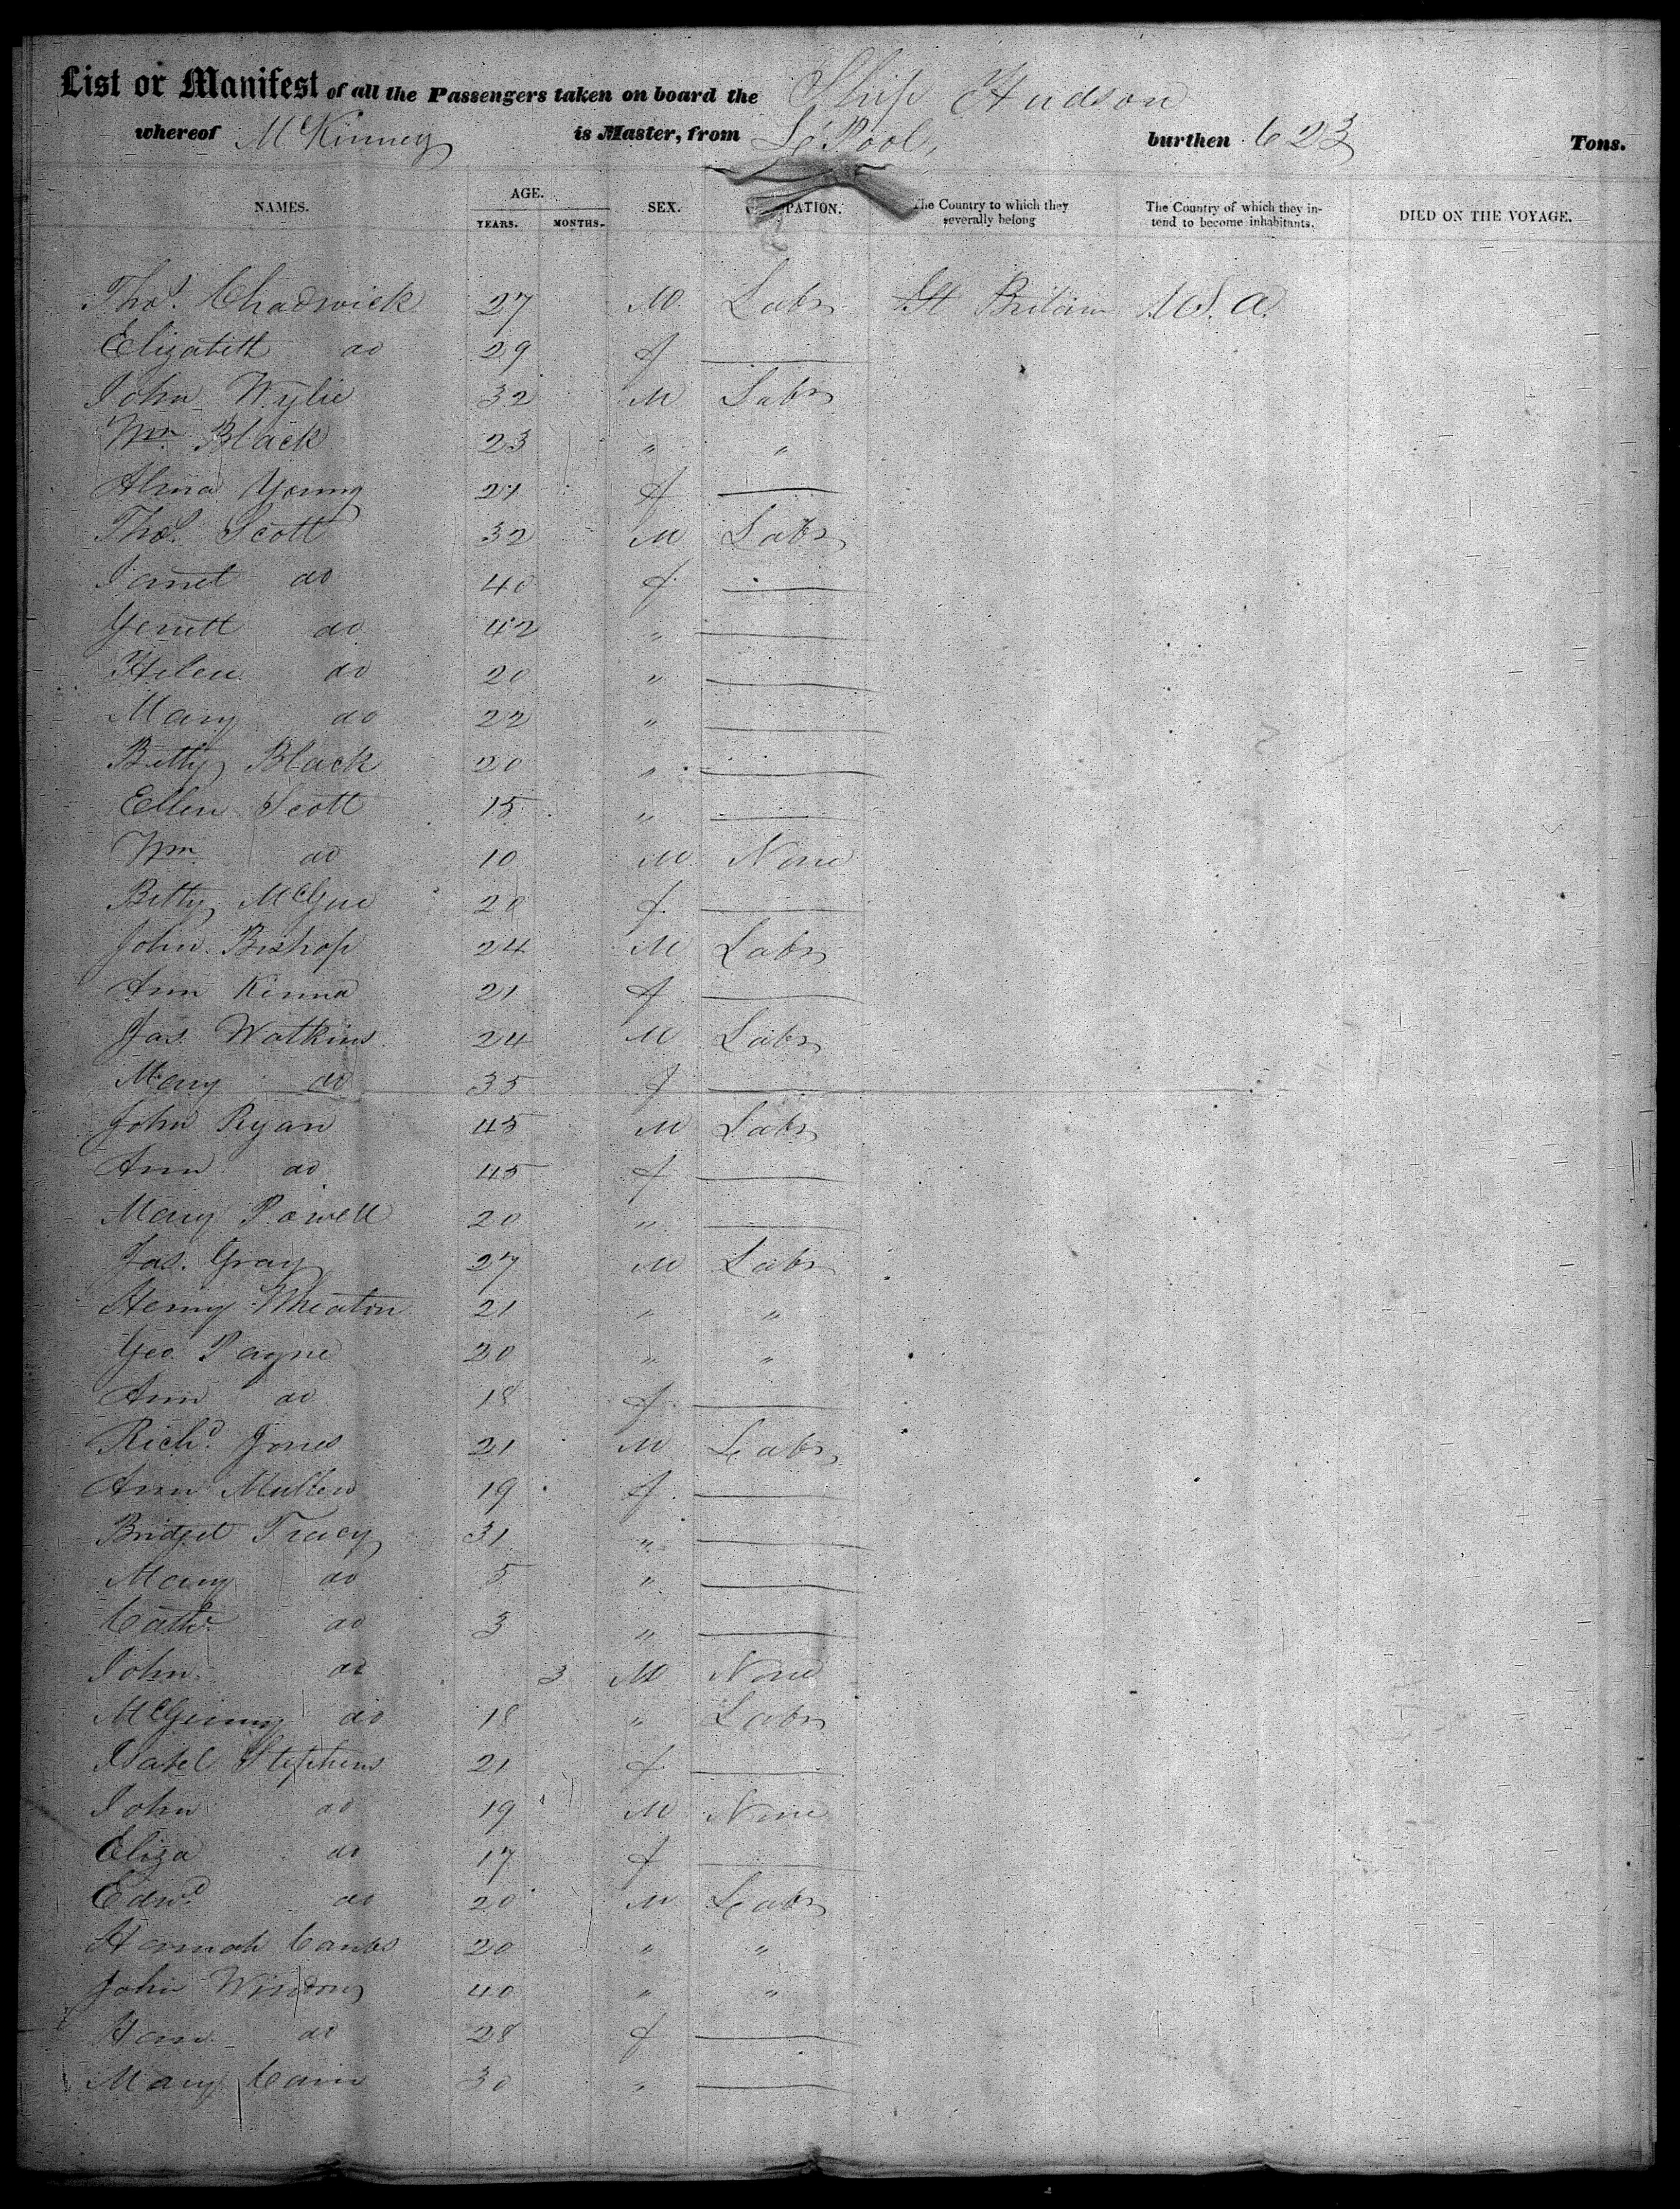 List or Manifest of all the Passengers taken on board the Ship Hudson
whereof McKinney is Master, from L'Pool, burthen 623 Tons.
NAMES. AGE. YEARS. MONTHS. SEX. The Country to which they severally belong The Country of which they intend to become inhabitants. DIED ON THE VOYAGE.
Thos. Chadwick 27 M Labr Gt Britain U.S.A.
Elizabeth do 29 f
John Wylie 32 M Labr
Wm. Black 23 " "
Young 21 f
Thos. Scott 32 M Labr
Janet do 40 f
do 42 "
Helen do 20 "
Mary do 22 "
Betty Black 20 "
Ellen Scott 15 "
Wm. do 10 M None
Betty McGue 20 f
John Bishop 24 M Labr
Ann Kinna 21 f
Jas. Watkins 24 M Labr
Mary do 35 f
John Ryan 45 M Labr
Ann do 45 f
Mary Powell 20 "
Jas. Gray 27 M Labr
Henry Wheaton 21 " "
Geo. Payne 30 " "
Ann do 18 f
Richd. Jones 21 M Labr
Ann Mullen 19 f
Bridget Tracy 31 "
Mary do 5 "
Cathe. do 3 "
John do 3 M None
do 18 " Labr
Isabel Stephens 21 f
John do 19 M None
Eliza do 17 f
Edwd. do 20 M Labr
Hannah 20 " "
John 40 " "
do 28 f
Mary Cain 30 "